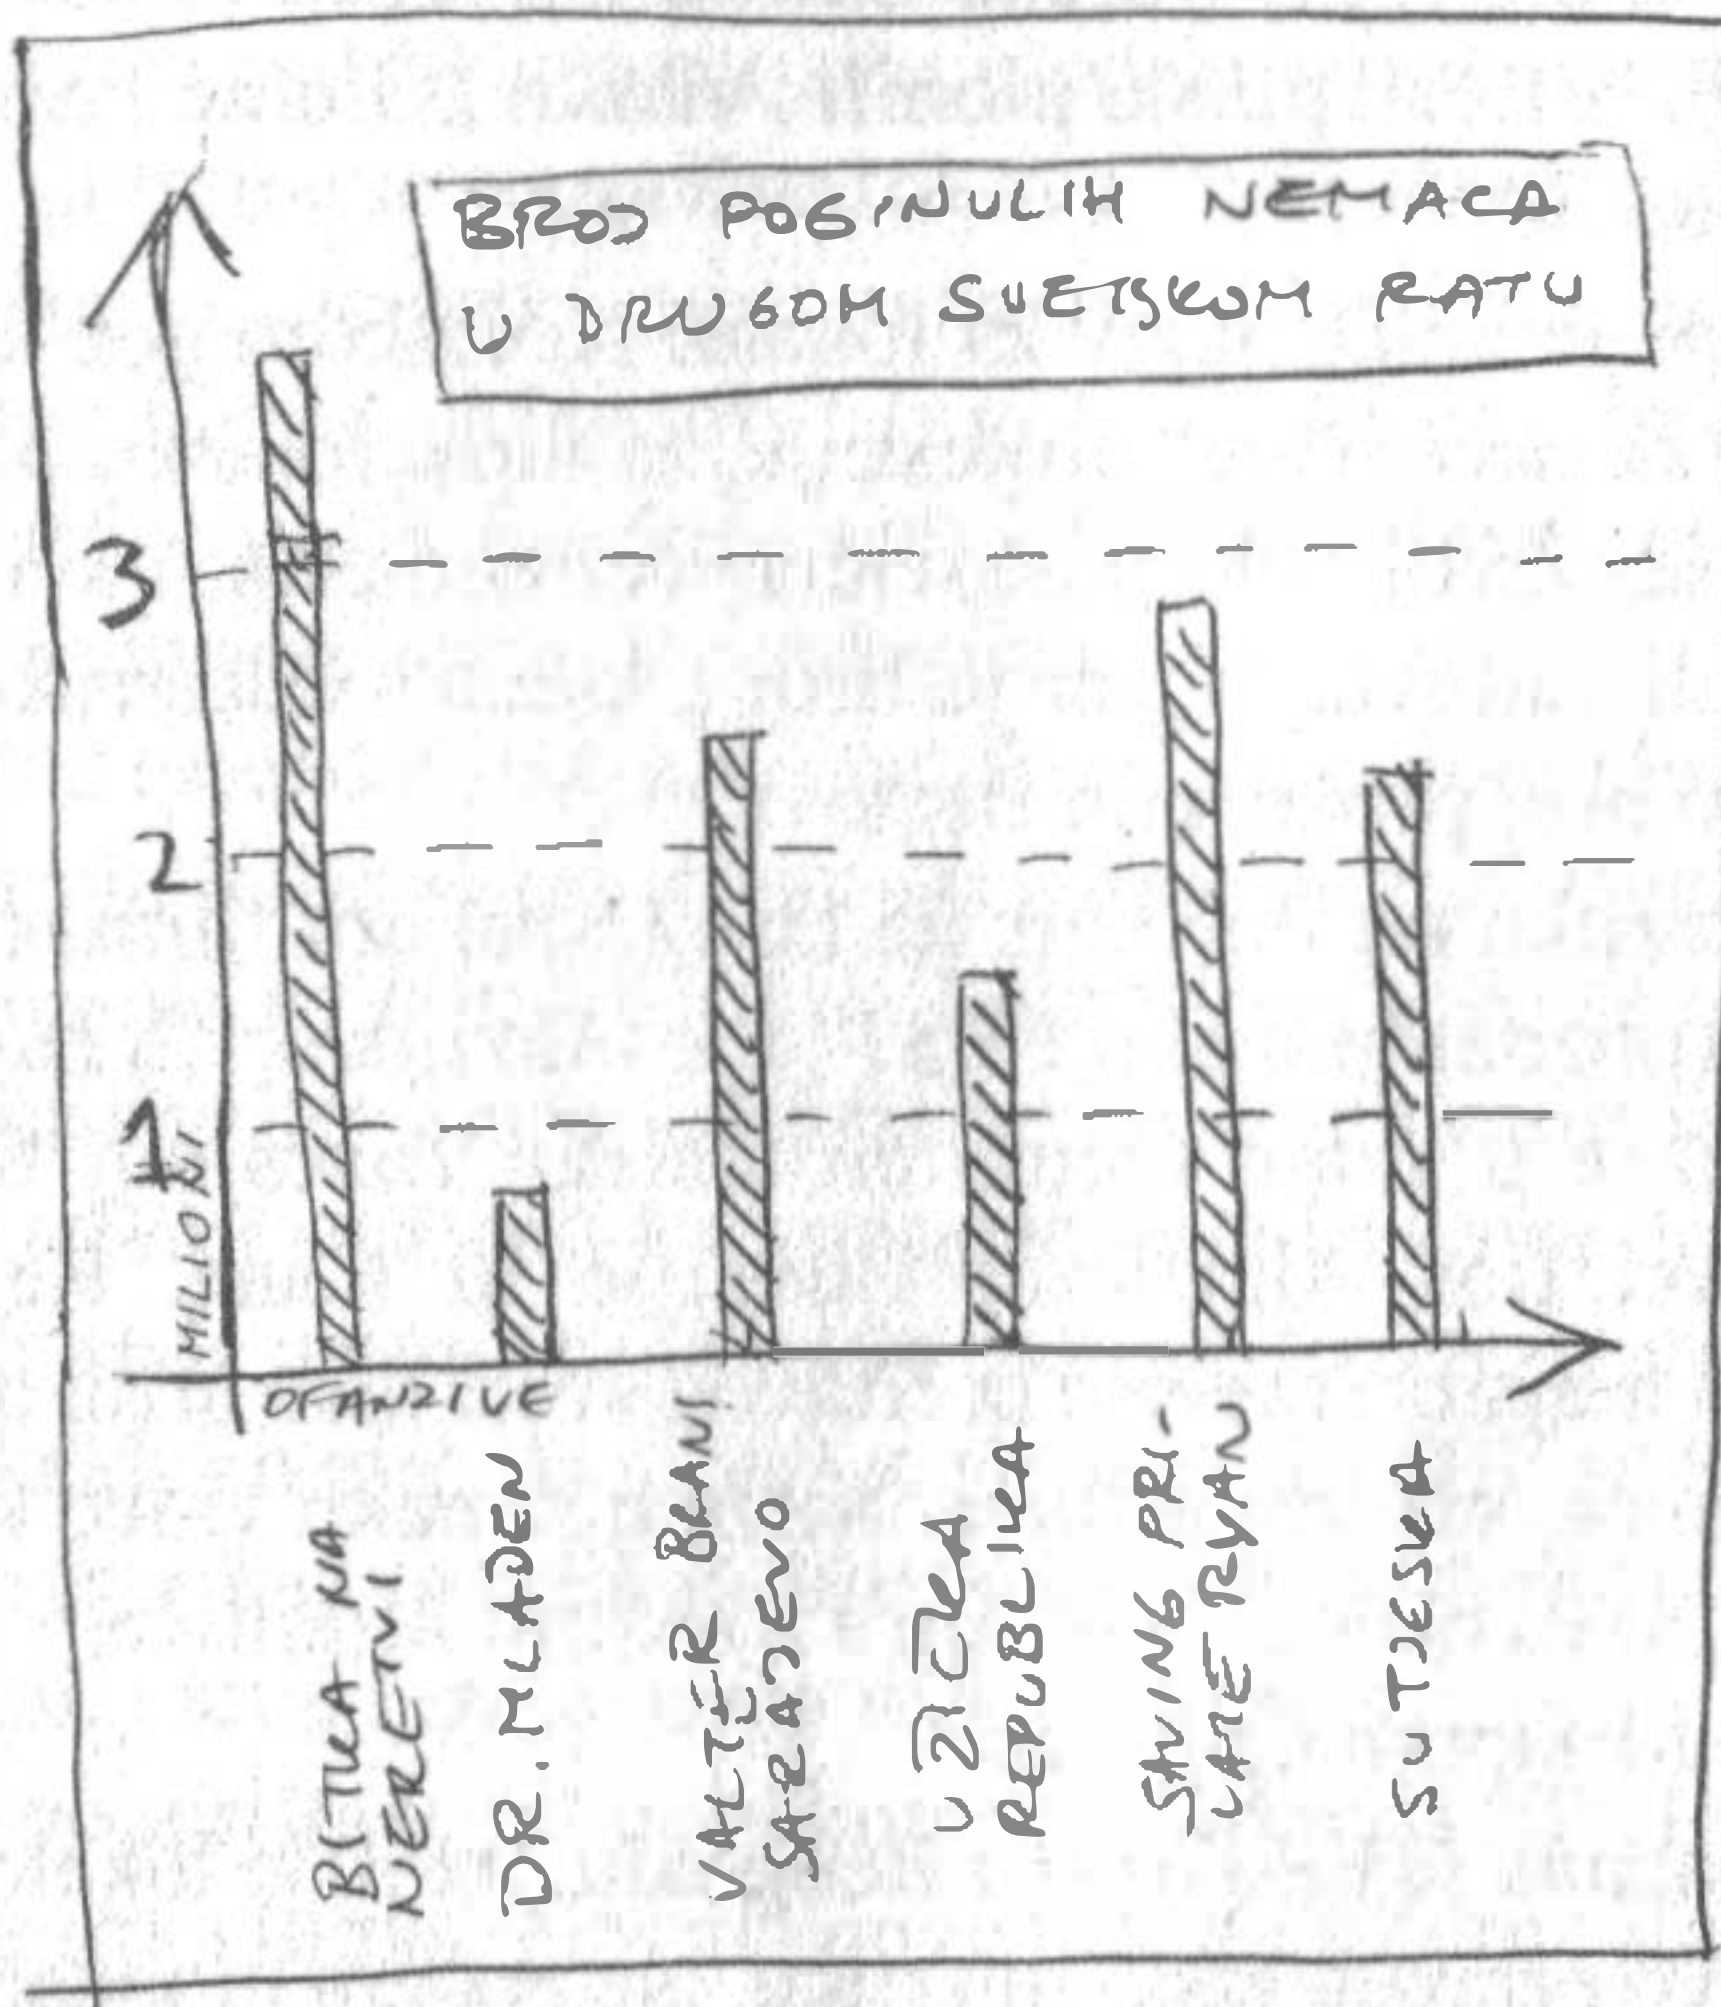 BROJ POGINULIH NEMACA
U DRUGOM SVETSKOM RATU
3
2
1
MILIONI
OFANZIVE
BITKA NA
NERETVI
DR. MLADEN
VALTER BRANI
SARAJEVO
UZIČKA
REPUBLIKA
SAVING PRI-
VATE RYAN
SUTJESKA